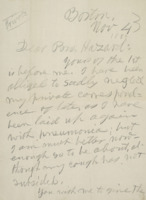 Boston,
Nov 4
Dear Mrs. Hazard:
Yours of the 1st
is before me. I have been
obliged to sadly neglect
my private correspond-
ence of late, as I have
been laid up again
with pneumonia, but
I am much better, now
enough so to be about, al-
though my cough has not
subsided.
You ask me to give the